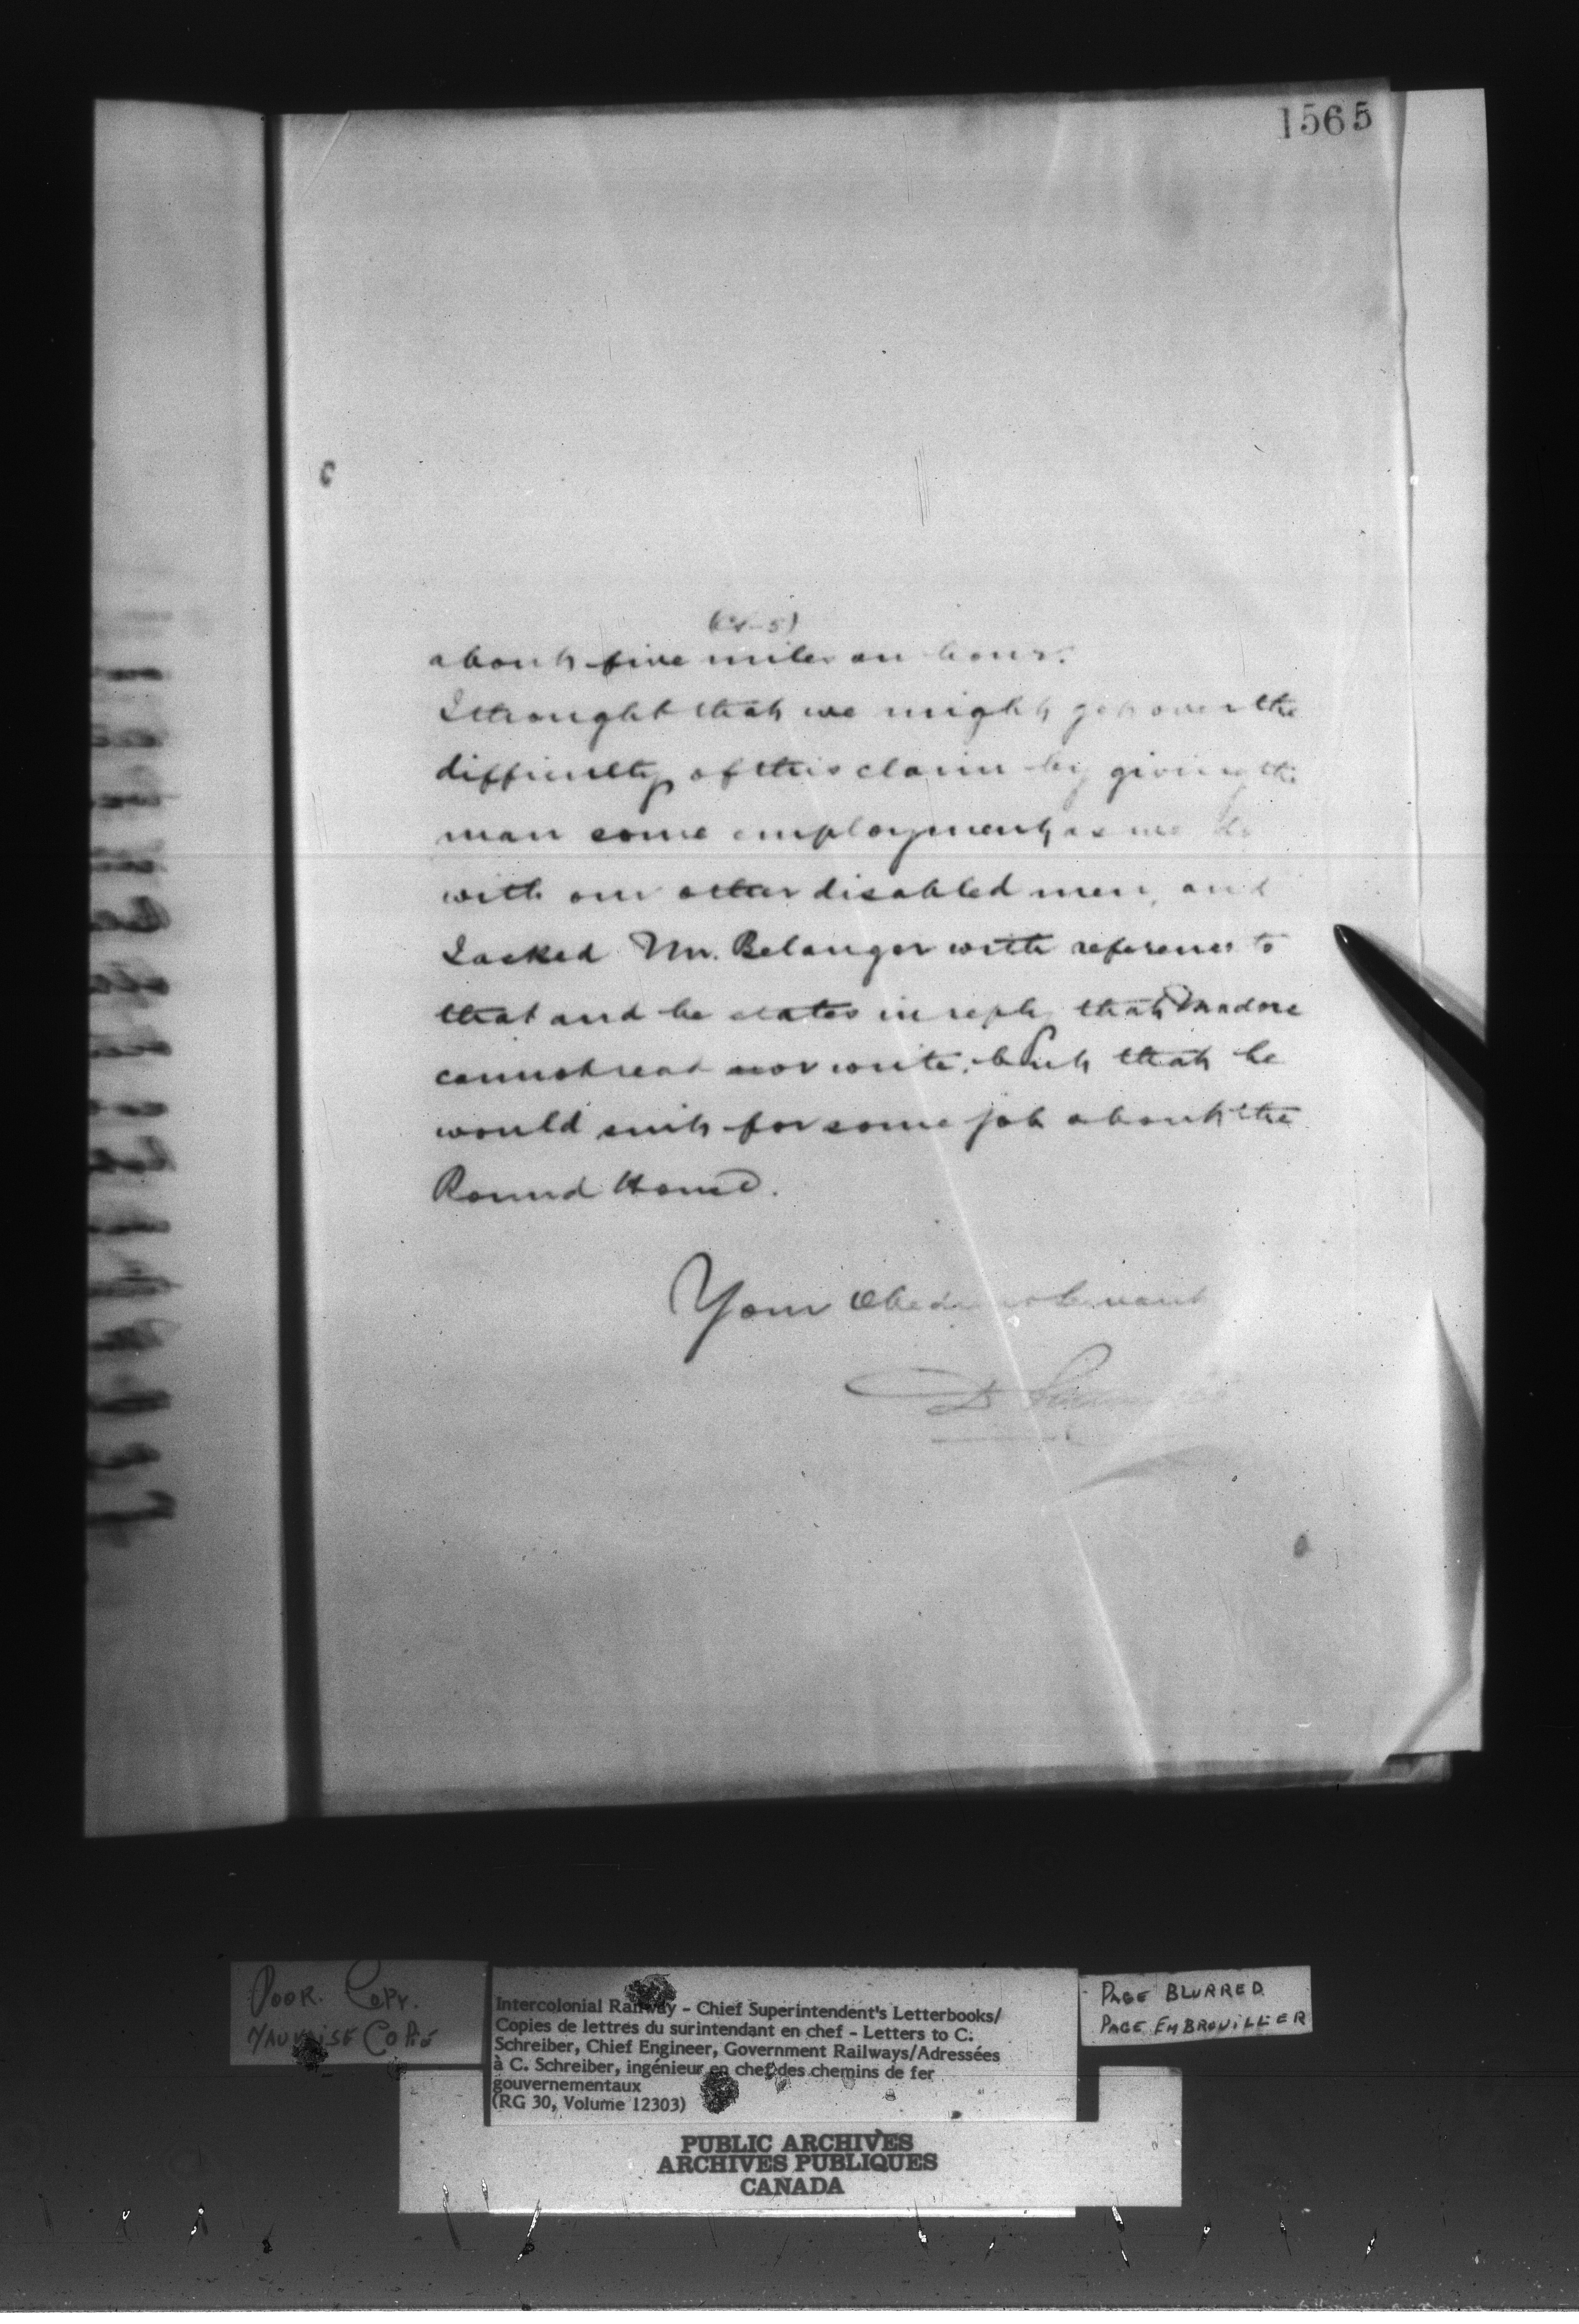 1565
about five miles an hour.
I thought that we might get over the
difficulty of this claim by giving the
man some employment as we do
with our other disabled men, and
I asked Mr. Belanger with reference to
that and he states in reply that Madore
cannot read nor write, but that he
would suit for some job about the
Round House.
Your Obedient Servant
D
POOR. COPY.
MAUVAISE COPIE
Intercolonial Railway - Chief Superintendent's Letterbooks/
Copies de lettres du surintendant en chef - Letters to C.
Schreiber, Chief Engineer, Government Railways/Adressées
à C. Schreiber, ingénieur en chef des chemins de fer
gouvernementaux
(RG 30, Volume 12303)
PAGE BLURRED.
PAGE EMBROUILLER
PUBLIC ARCHIVES
ARCHIVES PUBLIQUES
CANADA